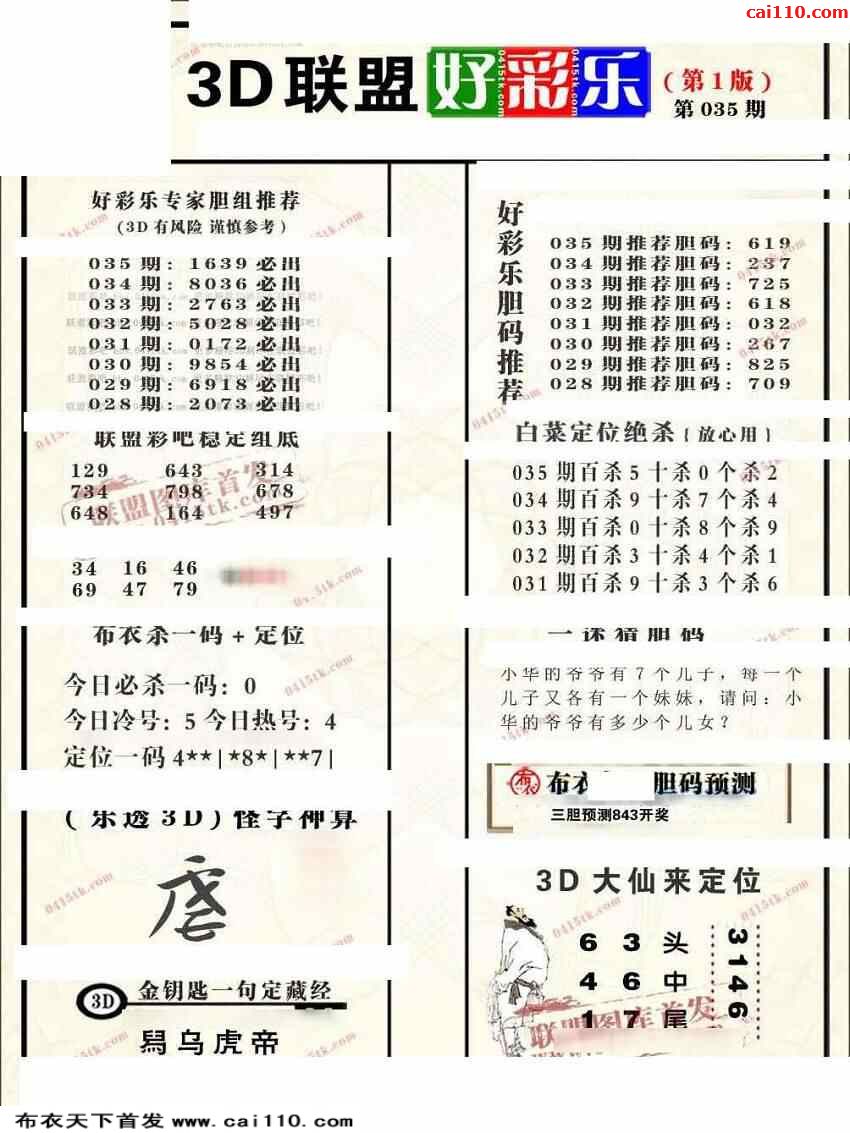 cai110.com
3D联盟好彩乐（第1版）
第035期
好彩乐专家胆组推荐
(3D有风险 谨慎参考)
035期: 1639必出
034期: 8036必出
033期: 2763必出
032期: 5028必出
031期: 0172必出
030期: 9854必出
029期: 6918必出
028期: 2073必出
联盟彩吧稳定组底
129 643 314
734 798 678
648 164 497
34 16 46
69 47 79
布衣杀一码+定位
今日必杀一码: 0
今日冷号: 5 今日热号: 4
定位一码 4**|*8*|**7|
(乐透3D)怪字神算
3D 金钥匙一句定藏经
舄乌虎帝
好彩乐胆码推荐
035期推荐胆码: 619
034期推荐胆码: 237
033期推荐胆码: 725
032期推荐胆码: 618
031期推荐胆码: 032
030期推荐胆码: 267
029期推荐胆码: 825
028期推荐胆码: 709
白菜定位绝杀{放心用}
035期百杀5十杀0个杀2
034期百杀9十杀7个杀4
033期百杀0十杀8个杀9
032期百杀3十杀4个杀1
031期百杀9十杀3个杀6
一课猜胆码
小华的爷爷有7个儿子，每一个
儿子又各有一个妹妹，请问：小
华的爷爷有多少个儿女？
布衣 胆码预测
三胆预测843开奖
3D大仙来定位
6 3 头
4 6 中
1 7 尾
3146
联盟图库首发
0415tk.com
布衣天下首发 www.cai110.com